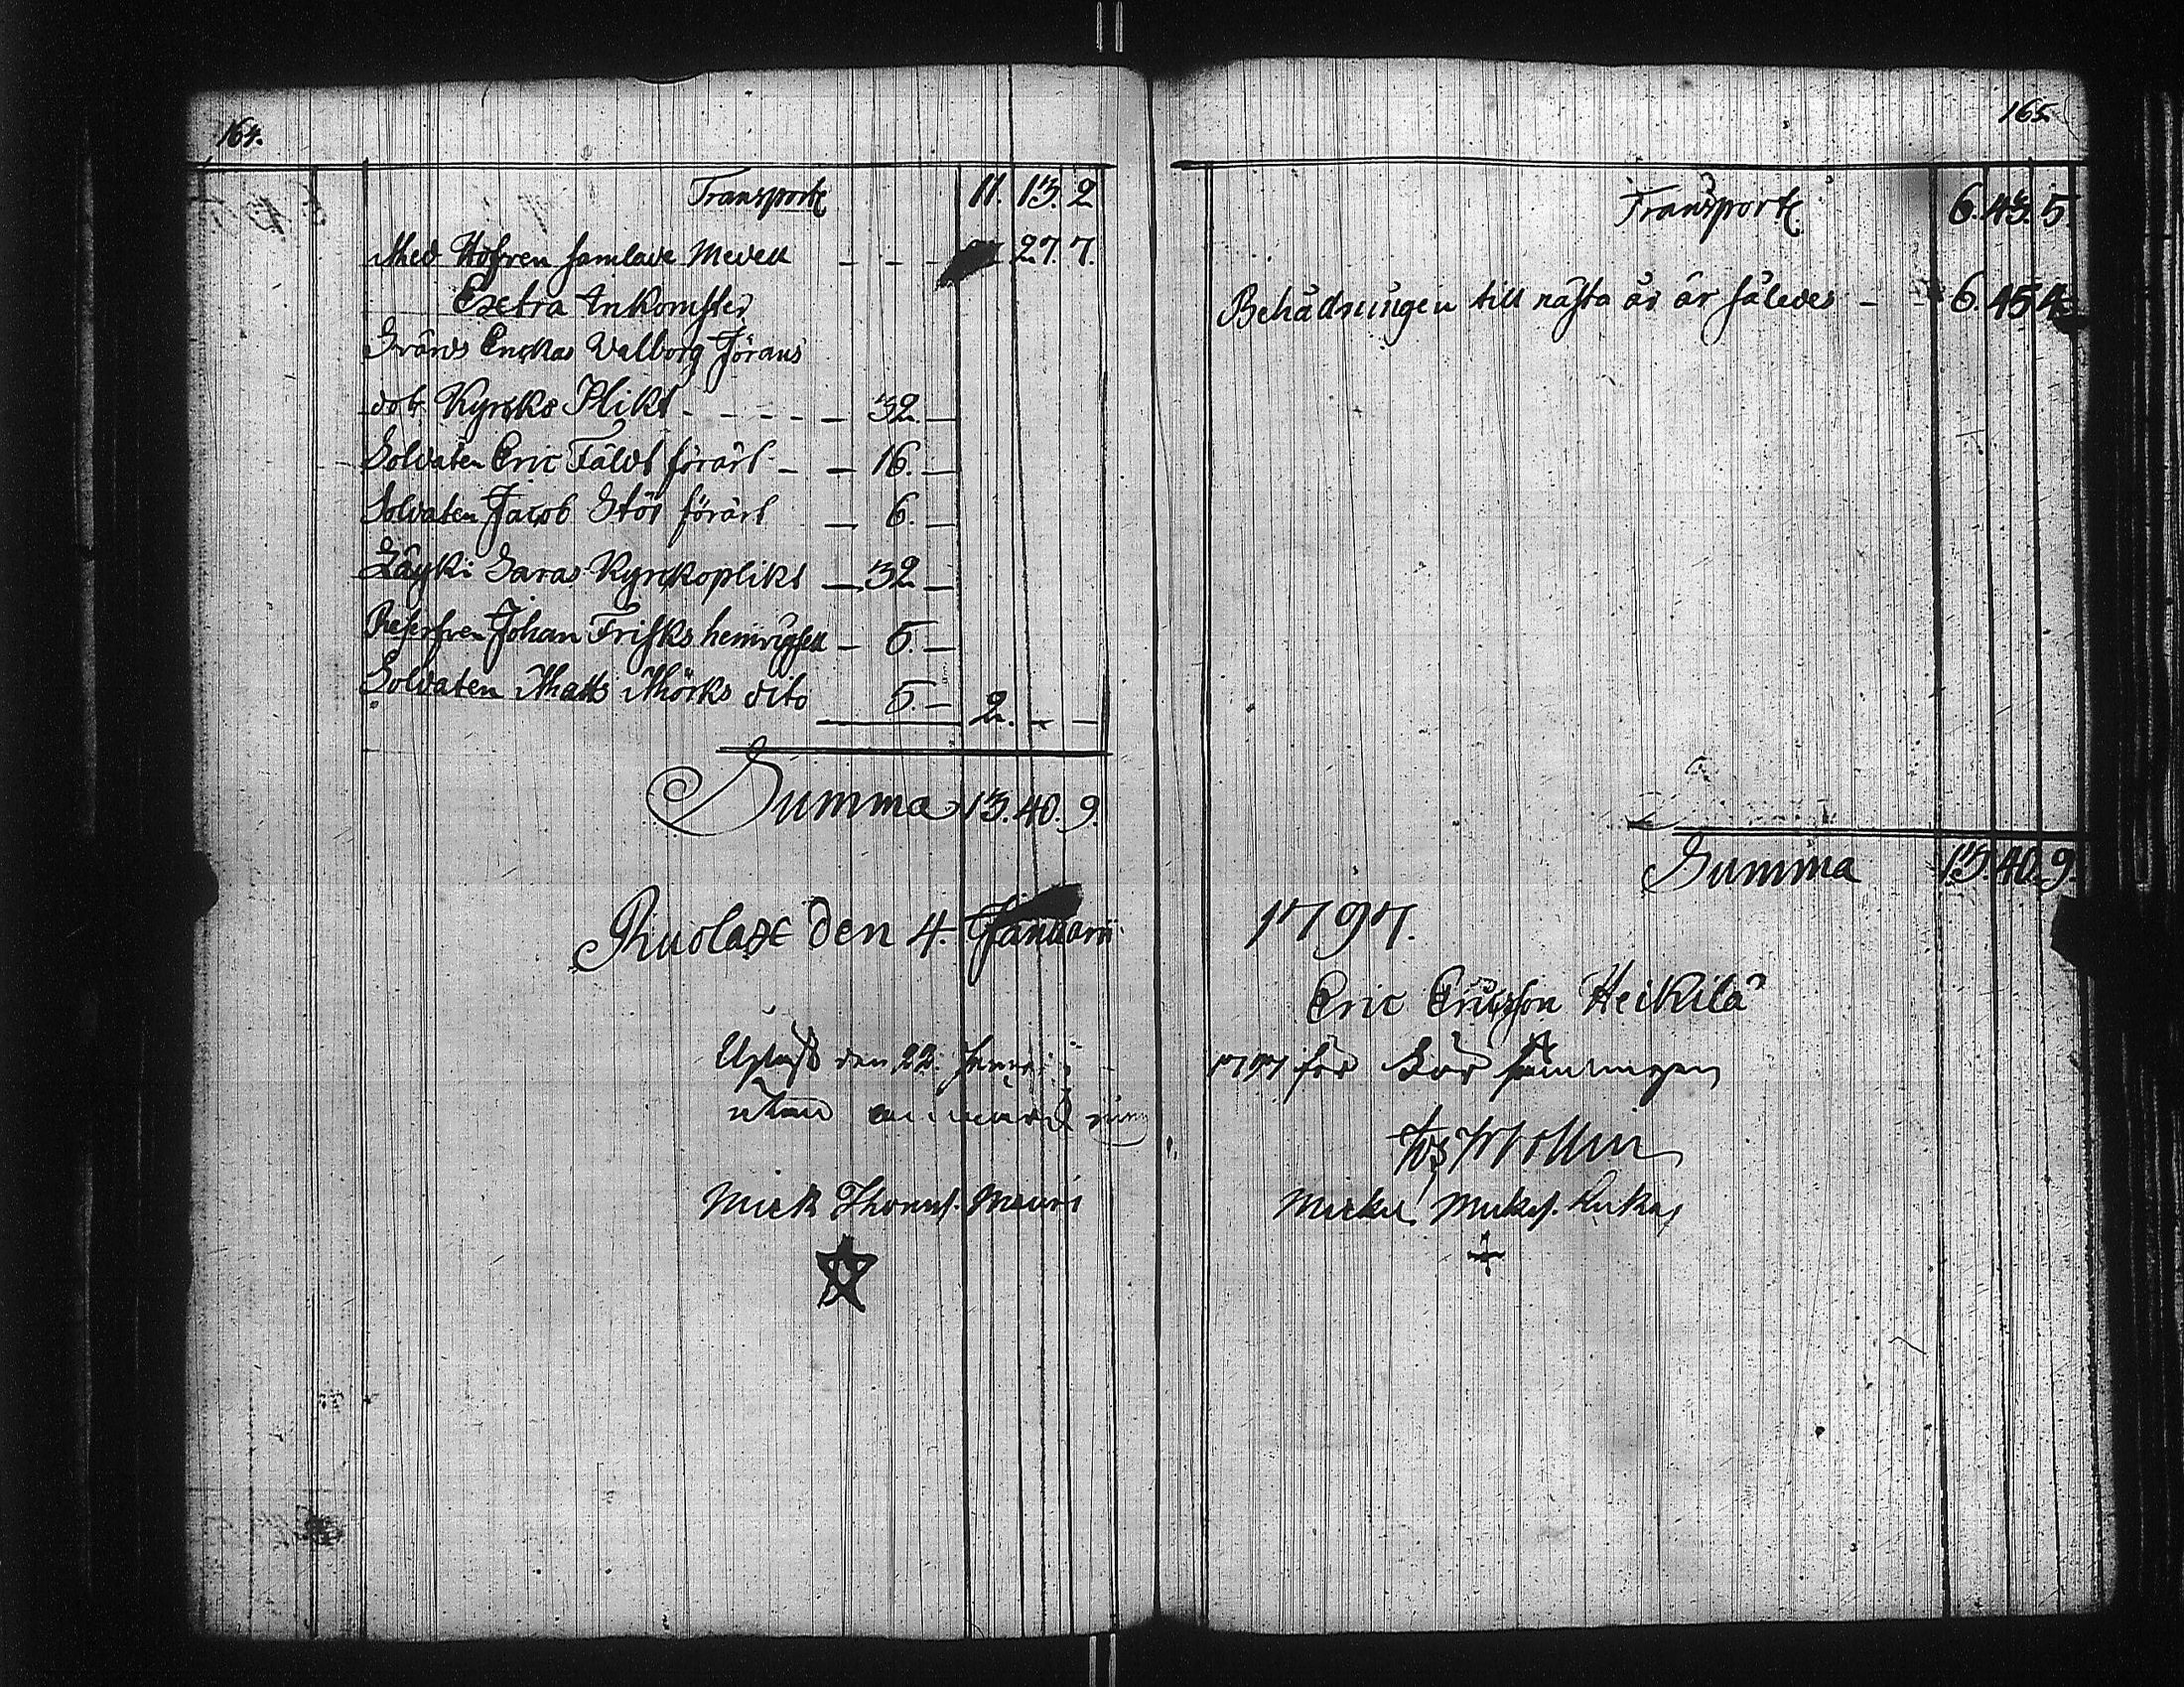 164.
Transport 11. 13. 2
Med Håfven samlade Medell - - - 27. 7.
Extra Inkomster
Svärds Enckas Valborg Jörans
dotr Kyrcko Plikt - - - - - 32. -
Soldaten Eric Täldt förärt - - 16. -
Soldaten Jacob Stör förärt - 6. -
Saras Kyrckoplikt - 32 -
Reserfven Johan Frisks hemvigsell - 5. -
Soldaten Matts Mörks dito 5. - 2. - -
Summa 13. 40. 9.
Ruolax den 4. Januarii
Uplyst den 22. Januarii
utan
Mick Thomss. Mauri
165.
Transport 6. 43. 5.
Behådningen till nästa år är således - - 6. 45. 4
Summa 13. 40. 9.
1797.
Eric Ericsson Heikilä
1797 för
Mickel Mickels.